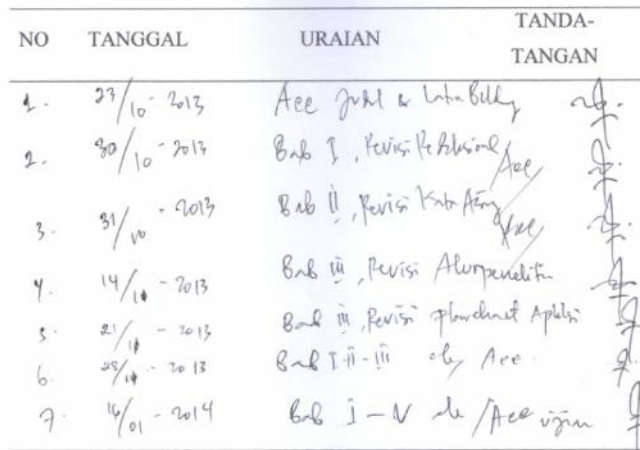 NO TANGGAL URAIAN TANDA-
TANGAN
1. 23/10 - 2013 Acc Judul & Latar Blkg
2. 30/10 - 2013 Bab I, Revisi Redaksional/Acc
3. 31/10 - 2013 Bab II, Revisi Kata Asing/Acc
4. 14/11 - 2013 Bab III, Revisi Alur penelitian
5. 21/11 - 2013 Bab III, Revisi Flowchart Aplikasi
6. /11 - 2013 Bab I-II-III Acc
7. 16/01 - 2014 Bab I - V /Acc ujian